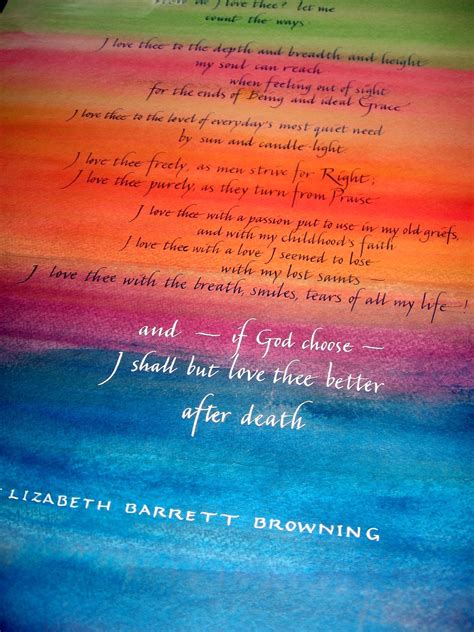 do I love thee? let me
count the ways
I love thee to the depth and breadth and height
my soul can reach
when feeling out of sight
for the ends of Being and ideal Grace
I love thee to the level of everyday's most quiet need
by sun and candle-light
I love thee freely, as men strive for Right;
I love thee purely, as they turn from Praise
I love thee with a passion put to use in my old griefs,
and with my childhood's faith
I love thee with a love I seemed to lose
with my lost saints —
I love thee with the breath, smiles, tears of all my life — !
and — if God choose —
I shall but love thee better
after death
LIZABETH BARRETT BROWNING